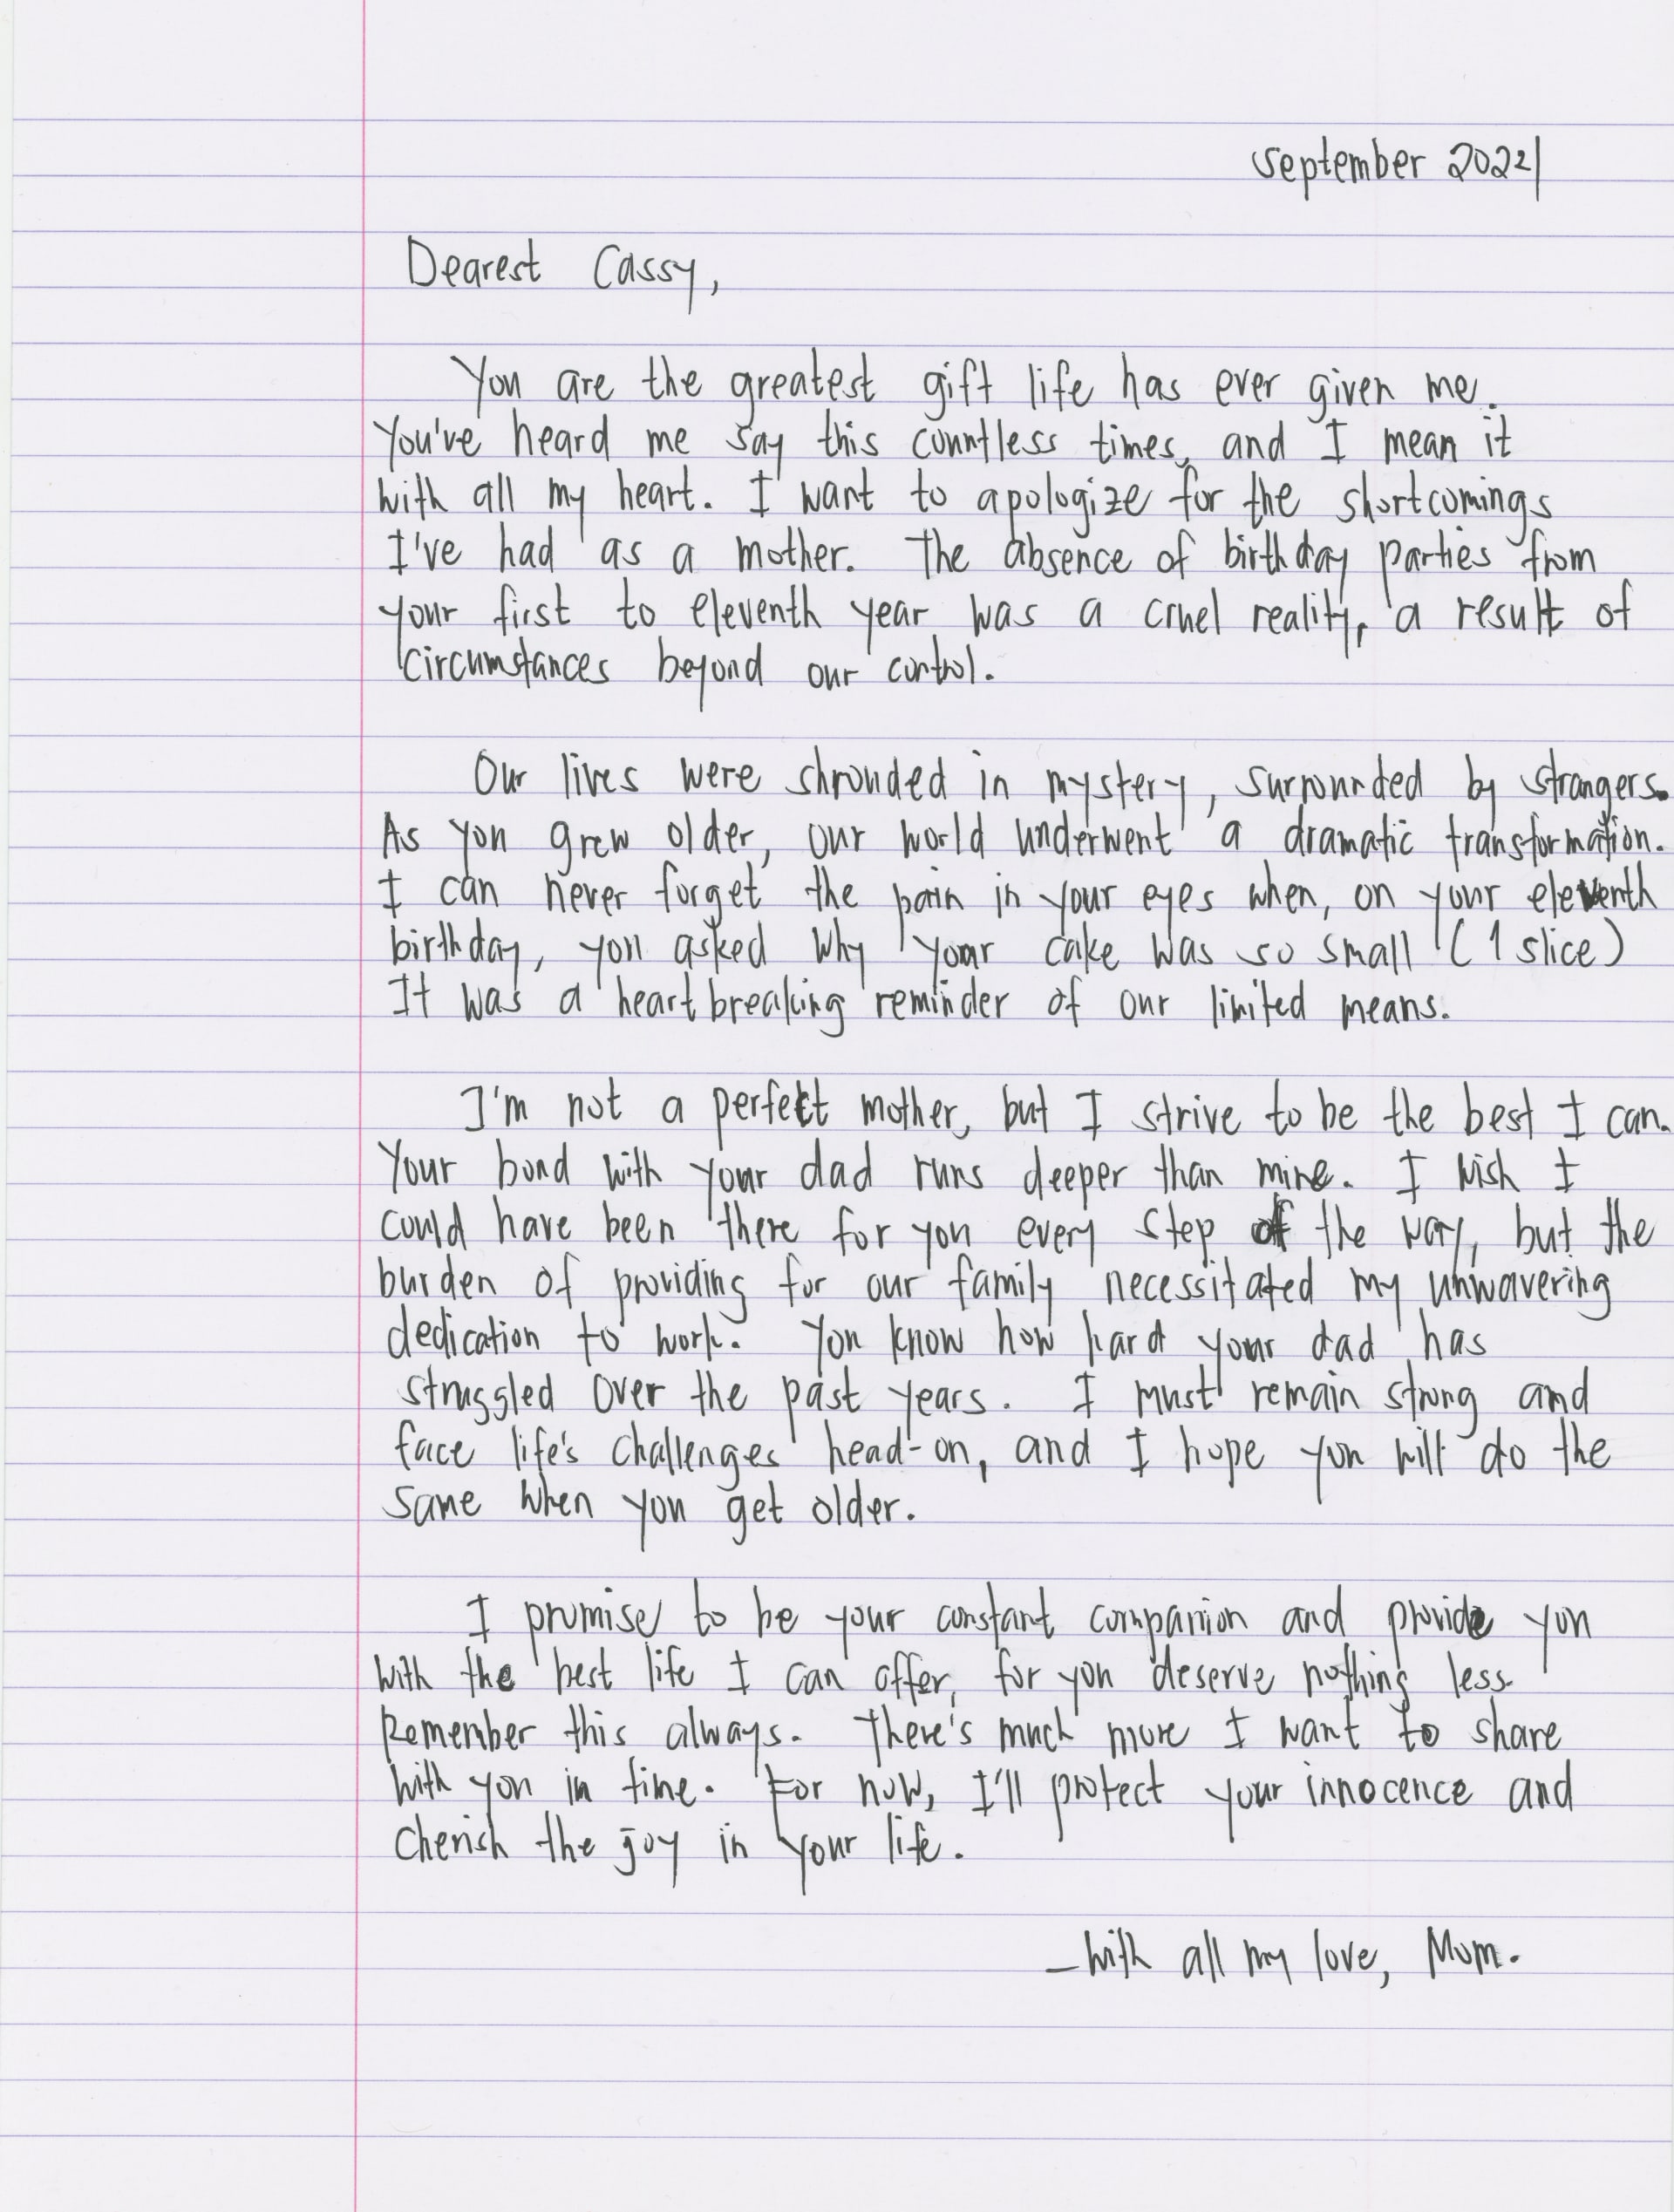 September 2022
Dearest Cassy,
You are the greatest gift life has ever given me.
You've heard me say this countless times, and I mean it
with all my heart. I want to apologize for the shortcomings
I've had as a mother. The absence of birthday parties from
your first to eleventh year was a cruel reality, a result of
circumstances beyond our control.
Our lives were shrouded in mystery, surrounded by strangers.
As you grew older, our world underwent a dramatic transformation.
I can never forget the pain in your eyes when, on your eleventh
birthday, you asked why your cake was so small (1 slice)
It was a heartbreaking reminder of our limited means.
I'm not a perfect mother, but I strive to be the best I can.
Your bond with your dad runs deeper than mine. I wish I
could have been there for you every step of the way, but the
burden of providing for our family necessitated my unwavering
dedication to work. You know how hard your dad has
struggled over the past years. I must remain strong and
face life's challenges head-on, and I hope you will do the
same when you get older.
I promise to be your constant companion and provide you
with the best life I can offer, for you deserve nothing less.
Remember this always. There's much more I want to share
with you in time. For now, I'll protect your innocence and
cherish the joy in your life.
- With all my love, Mom.